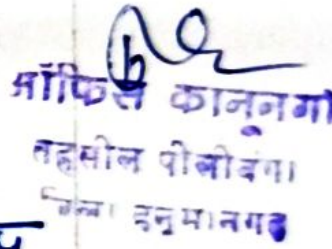 ऑफिस कानूनगो
तहसील पीलीबंगा
जिला हनुमानगढ़